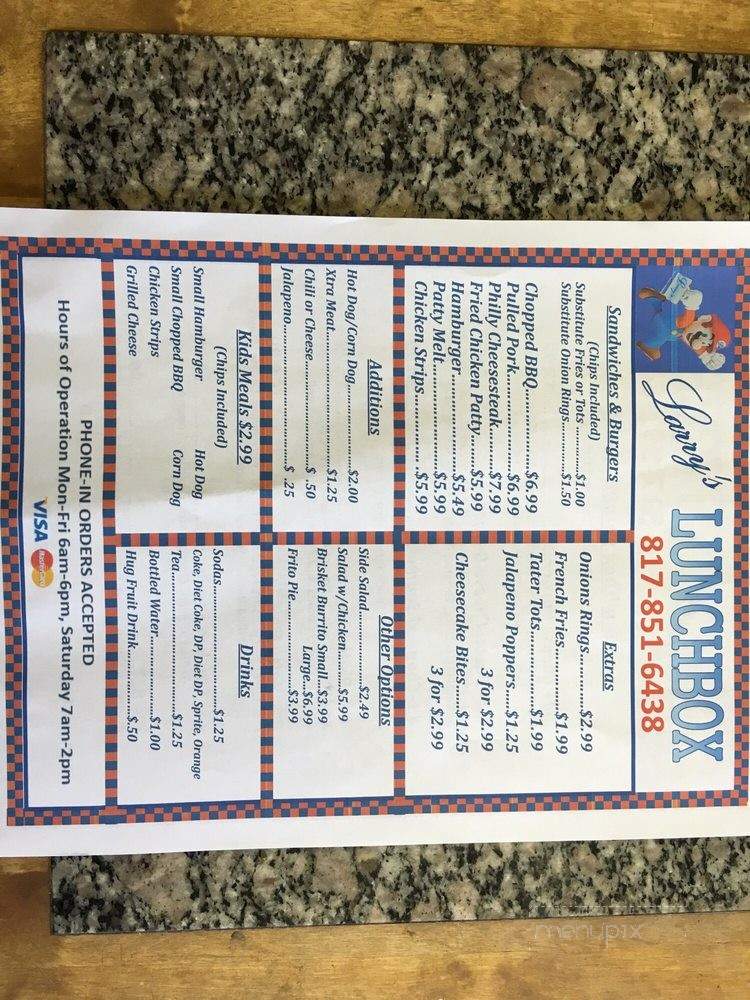 Larry's LUNCHBOX
817-851-6438
Sandwiches & Burgers
(Chips Included)
Substitute Fries or Tots ............$1.00
Substitute Onion Rings..............$1.50
Chopped BBQ.......................$6.99
Pulled Pork..........................$6.99
Philly Cheesesteak...............$7.99
Fried Chicken Patty.............$5.99
Hamburger..........................$5.49
Patty Melt............................$5.99
Chicken Strips......................$5.99
Extras
Onions Rings............$2.99
French Fries..............$1.99
Tater Tots.................$1.99
Jalapeno Poppers....$1.25
3 for $2.99
Cheesecake Bites.....$1.25
3 for $2.99
Additions
Hot Dog/Corn Dog....................$2.00
Xtra Meat..................................$1.25
Chili or Cheese...........................$ .50
Jalapeno.....................................$ .25
Other Options
Side Salad....................$2.49
Salad w/Chicken..........$5.99
Brisket Burrito Small...$3.99
Large...$6.99
Frito Pie.......................$3.99
Kids Meals $2.99
(Chips Included)
Small Hamburger Hot Dog
Small Chopped BBQ Corn Dog
Chicken Strips
Grilled Cheese
Drinks
Sodas...............................$1.25
Coke, Diet Coke, DP, Diet DP, Sprite, Orange
Tea...................................$1.25
Bottled Water...................$1.00
Hug Fruit Drink................$.50
PHONE-IN ORDERS ACCEPTED
Hours of Operation Mon-Fri 6am-6pm, Saturday 7am-2pm
VISA MasterCard
menypix